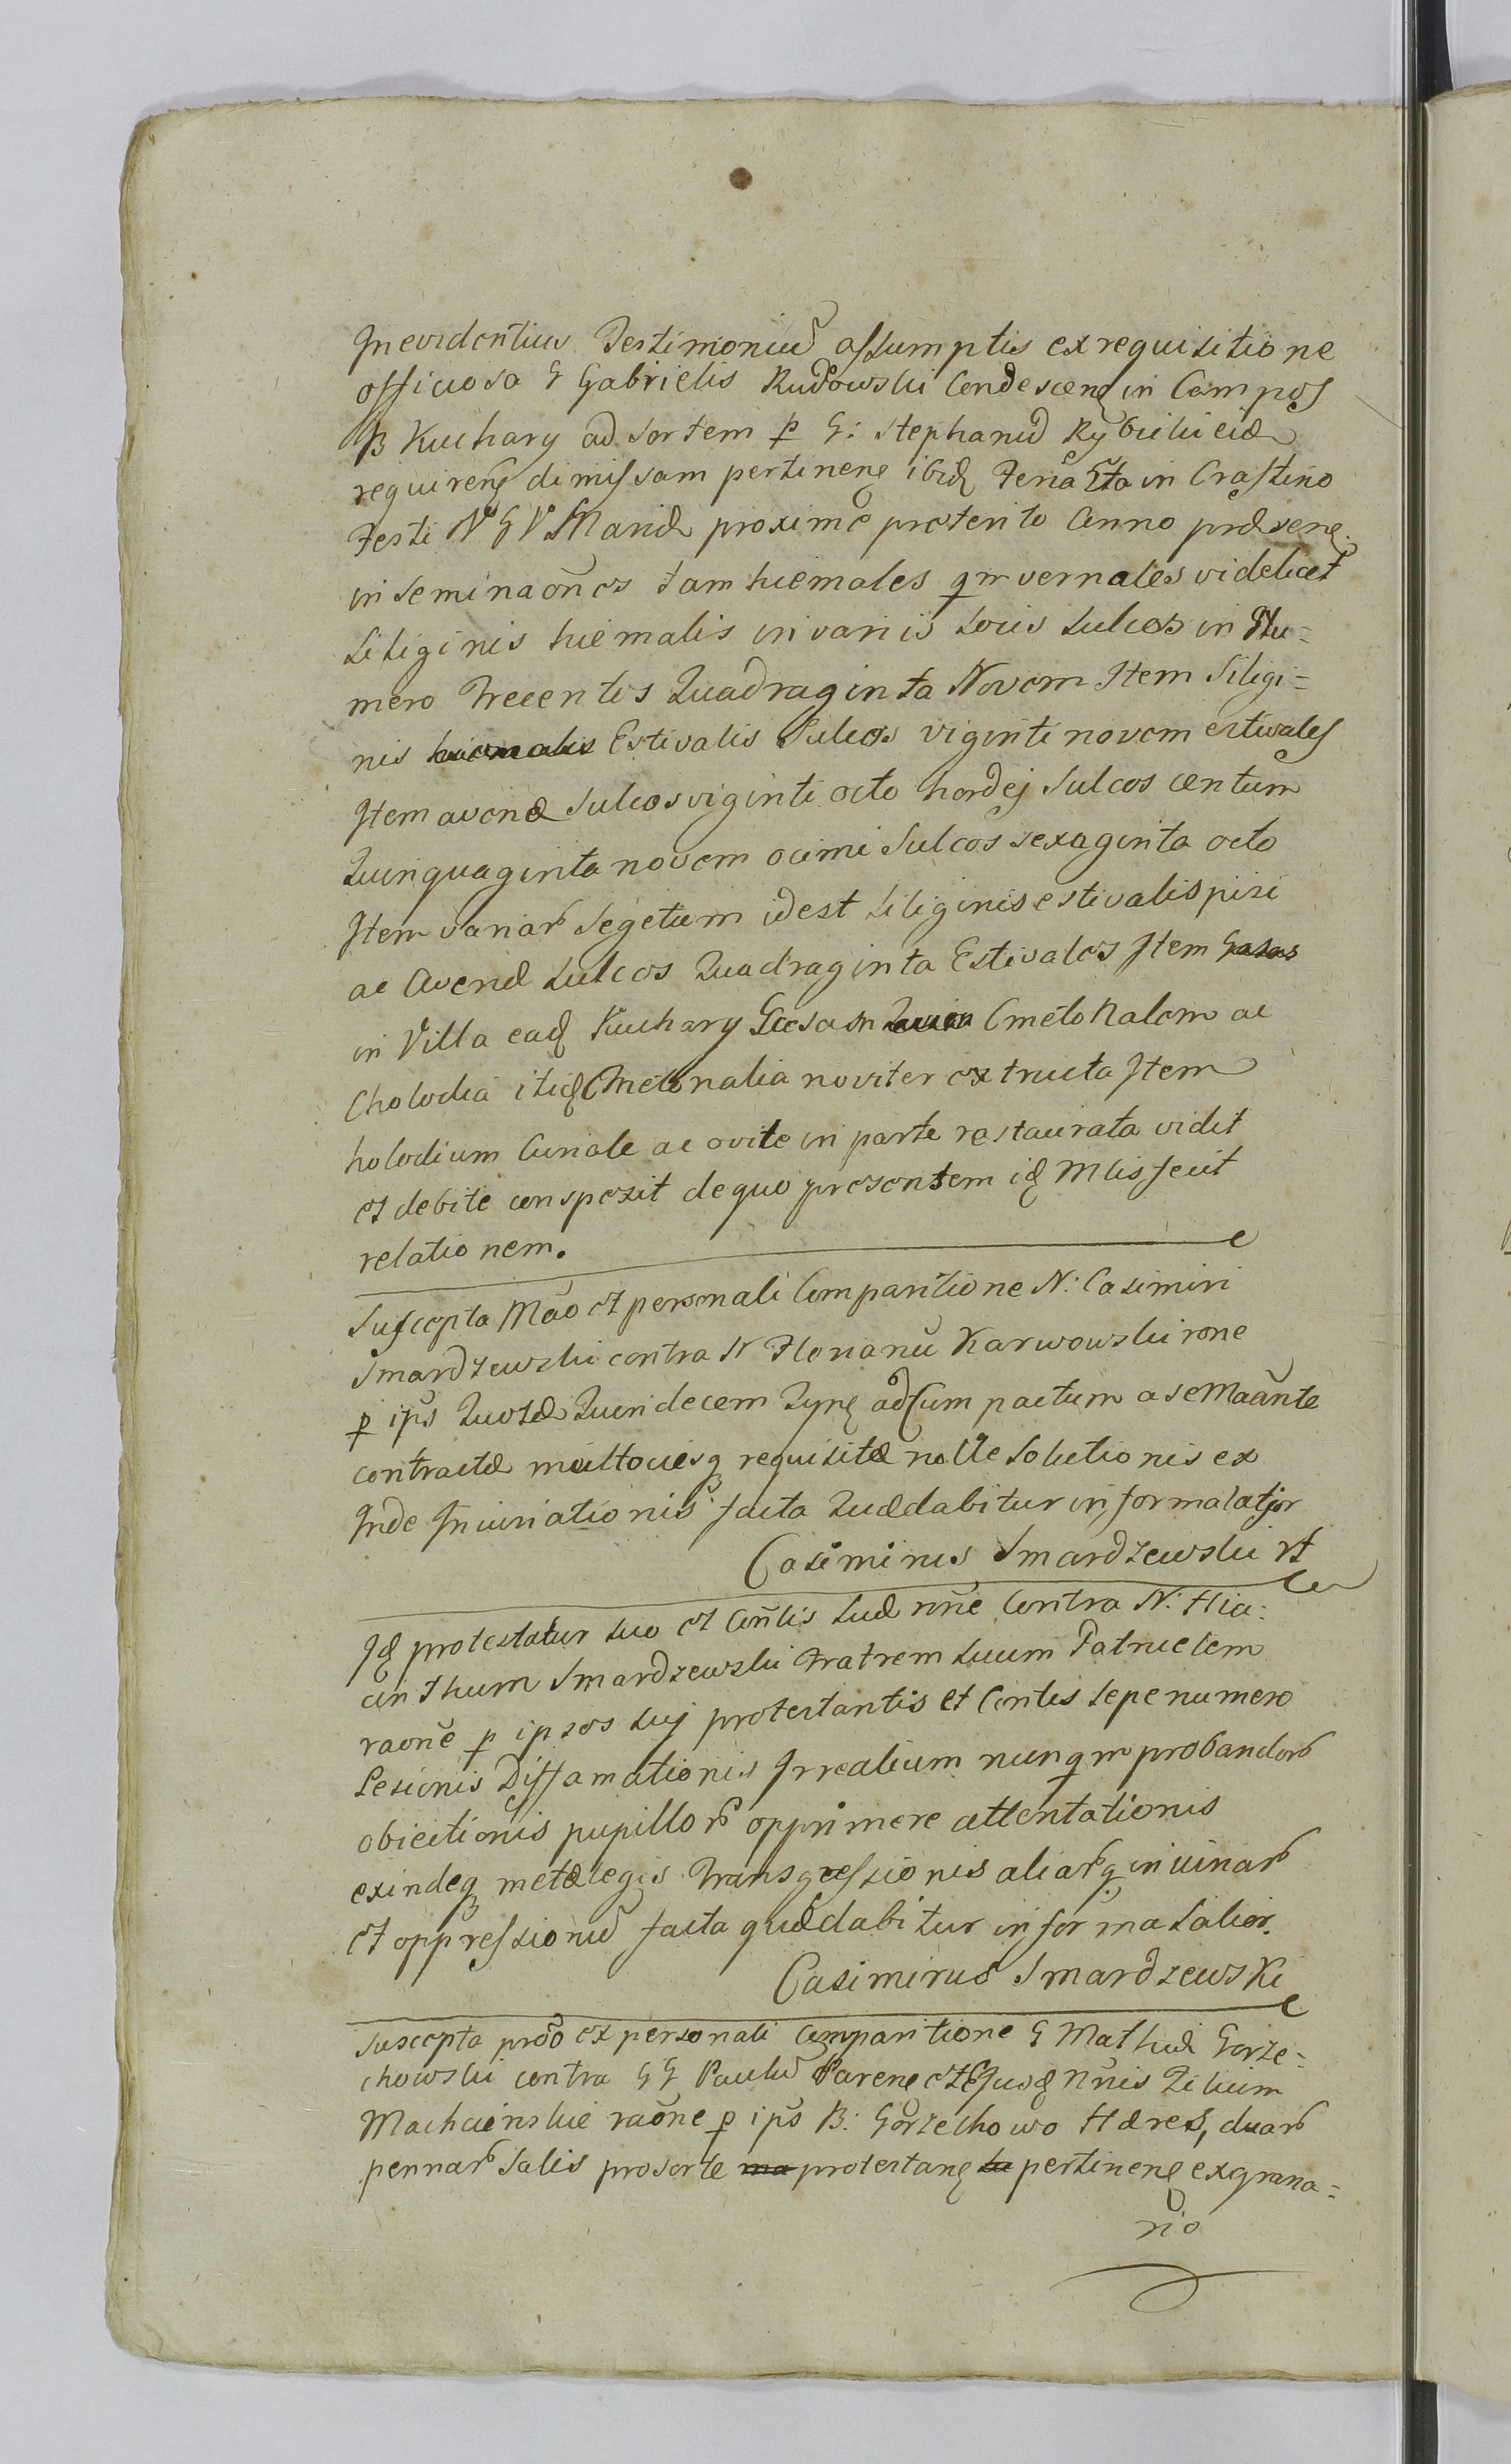 In evidentius Testimoniũ assumptis ex requisitione
officiosa G Gabrielis Rudowski Condescenᶒ in Campos
B Kuchary ad Sortem p̱ G: Stephanũ Rybicki eidæ
requirenᶒ dimissam pertinenᶒ ibidᶒ Feria 5ta in Crastino
Festi N G V Mariæ proxime preterito Anno præsenᶒ
in seminaões tam hiemales qm vernales videlicet
Siliginis hiemalis in variis locis Sulcos in Nu=
mero Trecentos Quadraginta Novem Item Siligi=
nis Estivalis Sulcos viginti novem estivales
Item avenæ Sulcos viginti octo hordej Sulcos centum
Quinquaginta novem ocimi Sulcos sexaginta octo
Item variaꝝ Segetum id est Siliginis estivalis pisi
ac Avenæ Sulcos Quadraginta Estivales Item
in Villa eadᶒ Kuchary Casam Cmetonalem ac
Cholodia itidᶒ Cmetonalia noviter extructa Item
holodium Curiale ac ovile in parte restaurata vidit
et debite conspexit de quo presentem idᶒ Mlis fecit
relationem.
Suscepta Mão et personali Comparitione N: Casimiri
Smardzewski contra N Florianũ Karwowski rõne
p̱ ipũs Quotæ Quindecem Tynᶒ ad Cum pactum a se Maãnte
contractæ multociesqꝫ requisitæ nolle Solutionis ex
Inde Iniuriationis facta Quæ dabitur in forma latior
Casimirus Smardzewski
Idᶒ protestatur suo et Conĩlis suæ rõne Contra N: Hia:
cinthum Smardzewski Fratrem suum Patruelem
raõne p̱ ipsos suj protestantis et Contis sepenumero
Lesionis Diffamationis Irrealium nunqm probandoꝝ
obiectionis pupilloꝝ opprimere attentationis
exindeqꝫ metælegis Transgressionis aliaꝝqꝫ iniuriaꝝ
et oppressionũ facta quædabitur in forma latior.
Casimirus Smardzewski
Suscepta prõo ex personali Comparitione G Mathiæ Gorze=
chowski contra GG Paulũ Parenᶒ et Ejusdᶒ Nr̃is Filium
Machcinskie raõne p̱ ipũs B: Gorzechowo Hæred, duaꝝ
pennaꝝ Salis pro sorte ma protestanᶒ su pertinenᶒ ex grana=
rio